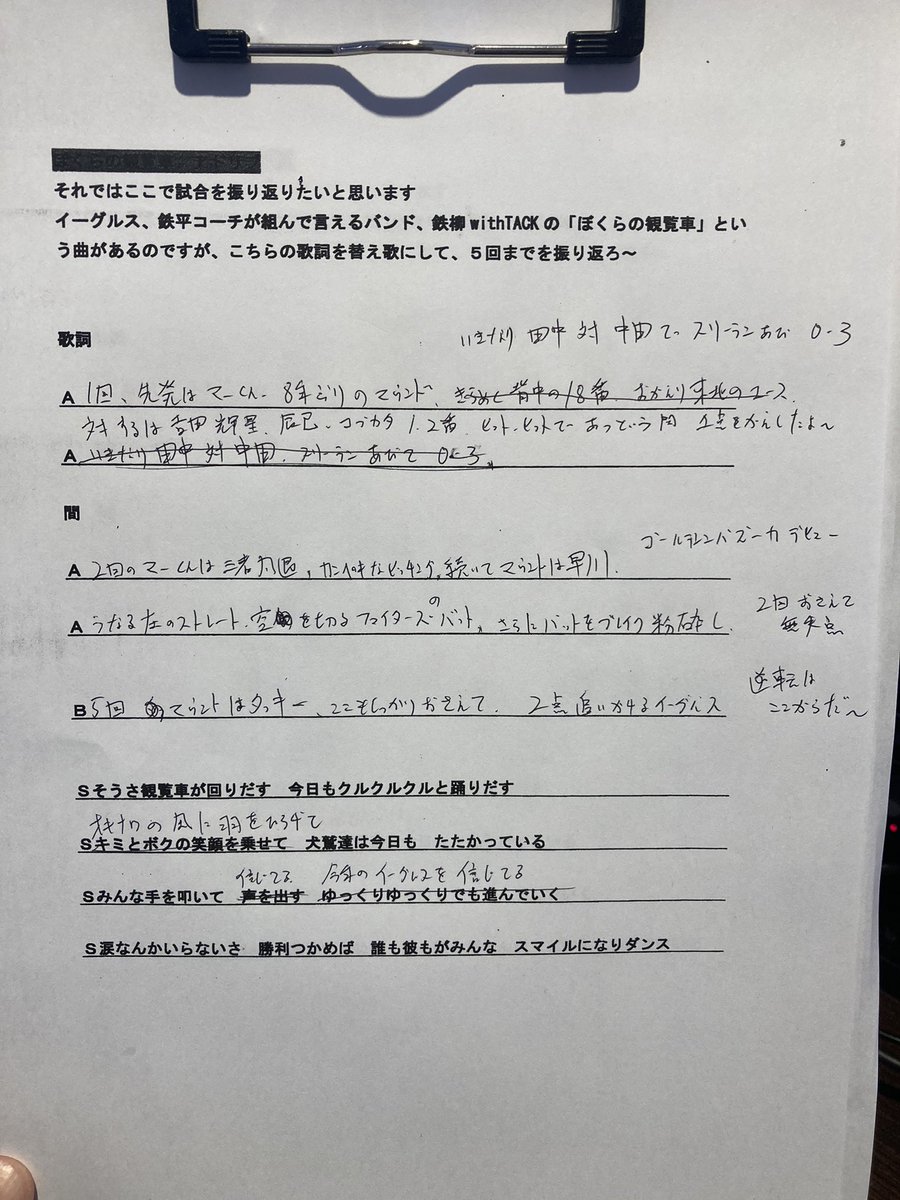 それではここで試合を振り返りたいと思います
イーグルス、鉄平コーチが組んで言えるバンド、鉄柳withTACKの「ぼくらの観覧車」とい
う曲があるのですが、こちらの歌詞を替え歌にして、５回までを振り返ろ～
歌詞
いきなり 田中 対 中田で スリーランあび 0-3
A 1回、先発はマーくん 8年ぶりのマウンド、きらめく背中の18番 おかえり東北のエース
対するは吉田輝星、辰己、コブカタ 1.2番 ヒット、ヒットで あっという間 1点をかえしたよ～
A いきなり田中対中田、スリーランあびて 0-3、
間
ゴールデンバズーカデビュー
A 2回のマーくんは三者凡退、カンペキなピッチング、続いてマウンドは早川、
A うなる左のストレート、空を切るファイターズのバット、さらにバットをブレイク粉砕し、
2回おさえて
無失点
B 5回 マウントはタッキー、ここもしっかりおさえて、 2点追いかけるイーグルス
逆転は
ここからだ～
Sそうさ観覧車が回りだす　今日もクルクルクルと踊りだす
の風に羽をひろげて
Sキミとボクの笑顔を乗せて　犬鷲達は今日も　たたかっている
信じてる 今年のイーグルスを信じてる
Sみんな手を叩いて　声を出す　ゆっくりゆっくりでも進んでいく
S涙なんかいらないさ　勝利つかめば　誰も彼もがみんな　スマイルになりダンス